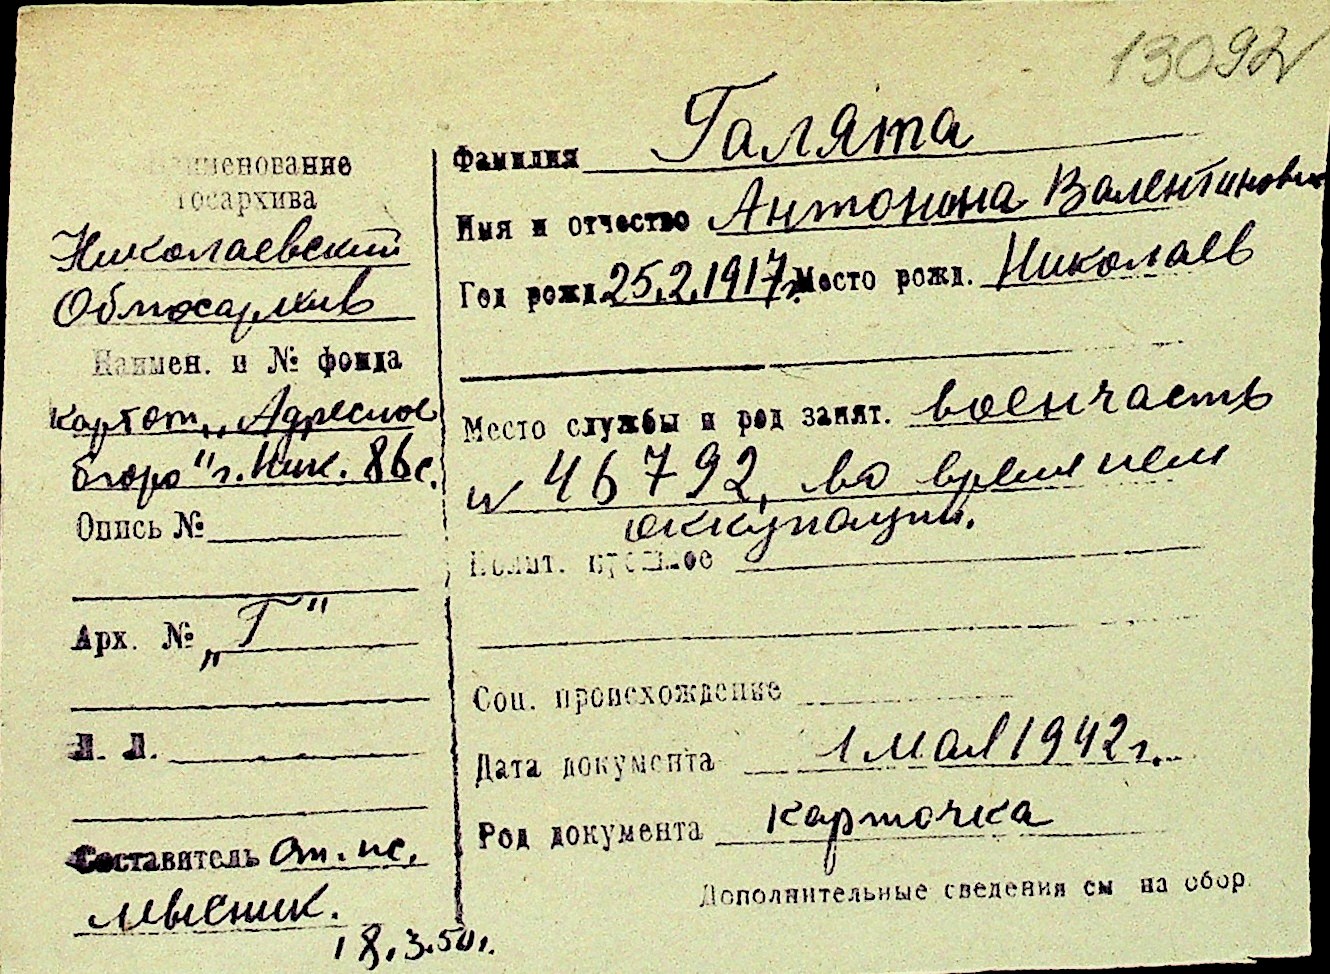 13092
Наименование
Госархива
Николаевский
Облгосархив
Наимен. и № фонда
картот. „Адресное
бюро" г. Ник. 86с.
Опись №
Арх. № „Г"
Л. Л.
Составитель от. ис.
Мысник.
18.3.50г.
Фамилия Галята
Имя и отчество Антонина Валентиновн
Год рожд. 25.2.1917г. Место рожд. Николаев
Место службы и род занят. военчасть
№ 46792, во время нем
оккупации.
Полит. прошлое
Соц. происхождение
Дата документа 1 мая 1942г.
Род документа карточка
Дополнительные сведения см на обор.